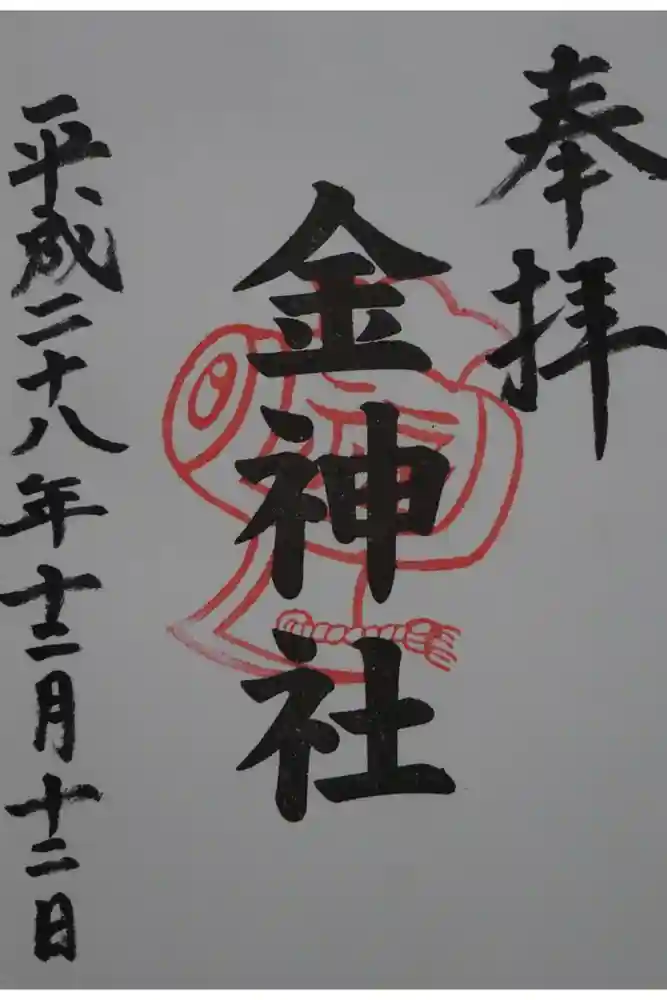 奉拝
金神社
平成二十八年十二月十二日